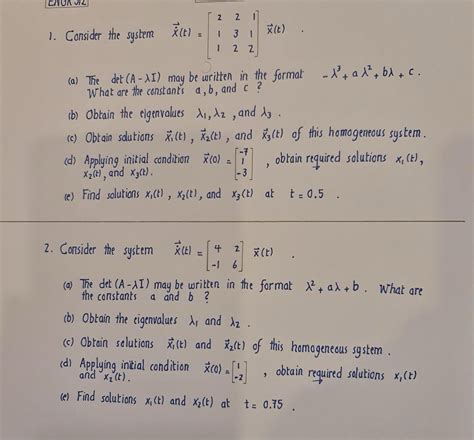 ENGR 312
1. Consider the system ẋ⃗(t) = [2 2 1; 1 3 1; 1 2 2] x⃗(t) .
(a) The det (A - λI) may be written in the format -λ³ + aλ² + bλ + c .
What are the constants a, b, and c ?
(b) Obtain the eigenvalues λ₁, λ₂ , and λ₃ .
(c) Obtain solutions x⃗₁(t) , x⃗₂(t) , and x⃗₃(t) of this homogeneous system .
(d) Applying initial condition x⃗(0) = [-7; 1; -3] , obtain required solutions x₁(t),
x₂(t), and x₃(t).
(e) Find solutions x₁(t) , x₂(t), and x₃(t) at t = 0.5 .
2. Consider the system ẋ⃗(t) = [4 2; -1 6] x⃗(t) .
(a) The det (A - λI) may be written in the format λ² + aλ + b . What are
the constants a and b ?
(b) Obtain the eigenvalues λ₁ and λ₂ .
(c) Obtain solutions x⃗₁(t) and x⃗₂(t) of this homogeneous system .
(d) Applying initial condition x⃗(0) = [1; -2] , obtain required solutions x₁(t)
and x₂(t).
(e) Find solutions x₁(t) and x₂(t) at t = 0.75 .